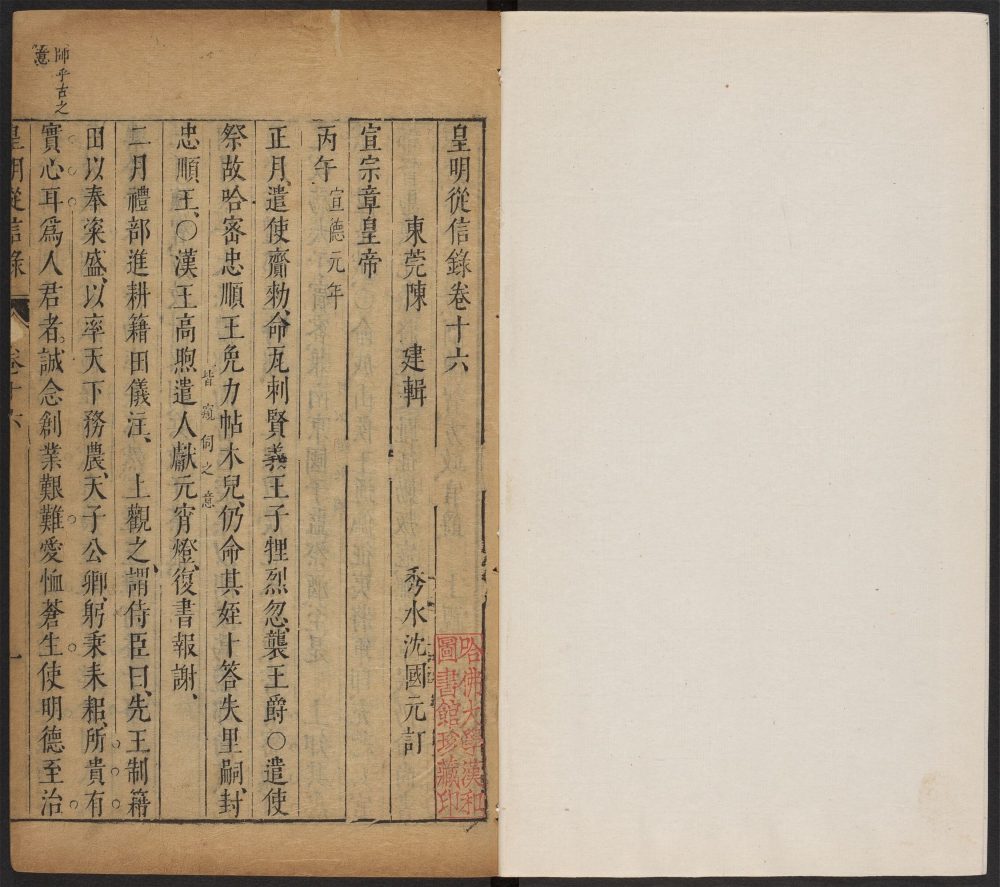 皇明從信錄卷十六
東莞陳 建輯 秀水沈國元訂
宣宗章皇帝
丙午宣德元年
正月、遣使齎勑、命瓦剌賢義王子狸烈忽、襲王爵〇遣使
祭故哈密忠順王免力帖木兒、仍命其姪十答失里嗣、封
忠順王、〇漢王高煦遣人獻元宵燈、復書報謝、
皆窺伺之意
二月禮部進耕籍田儀注、 上觀之、謂侍臣曰、先王制籍
田以奉粢盛、以率天下務農、天子公卿、躬秉耒耜、所貴有
實心耳爲人君者、誠念創業艱難愛恤蒼生使明德至治
皇明從信錄 卷十六 一
師乎古之
意
哈佛大學漢和
圖書館珍藏印